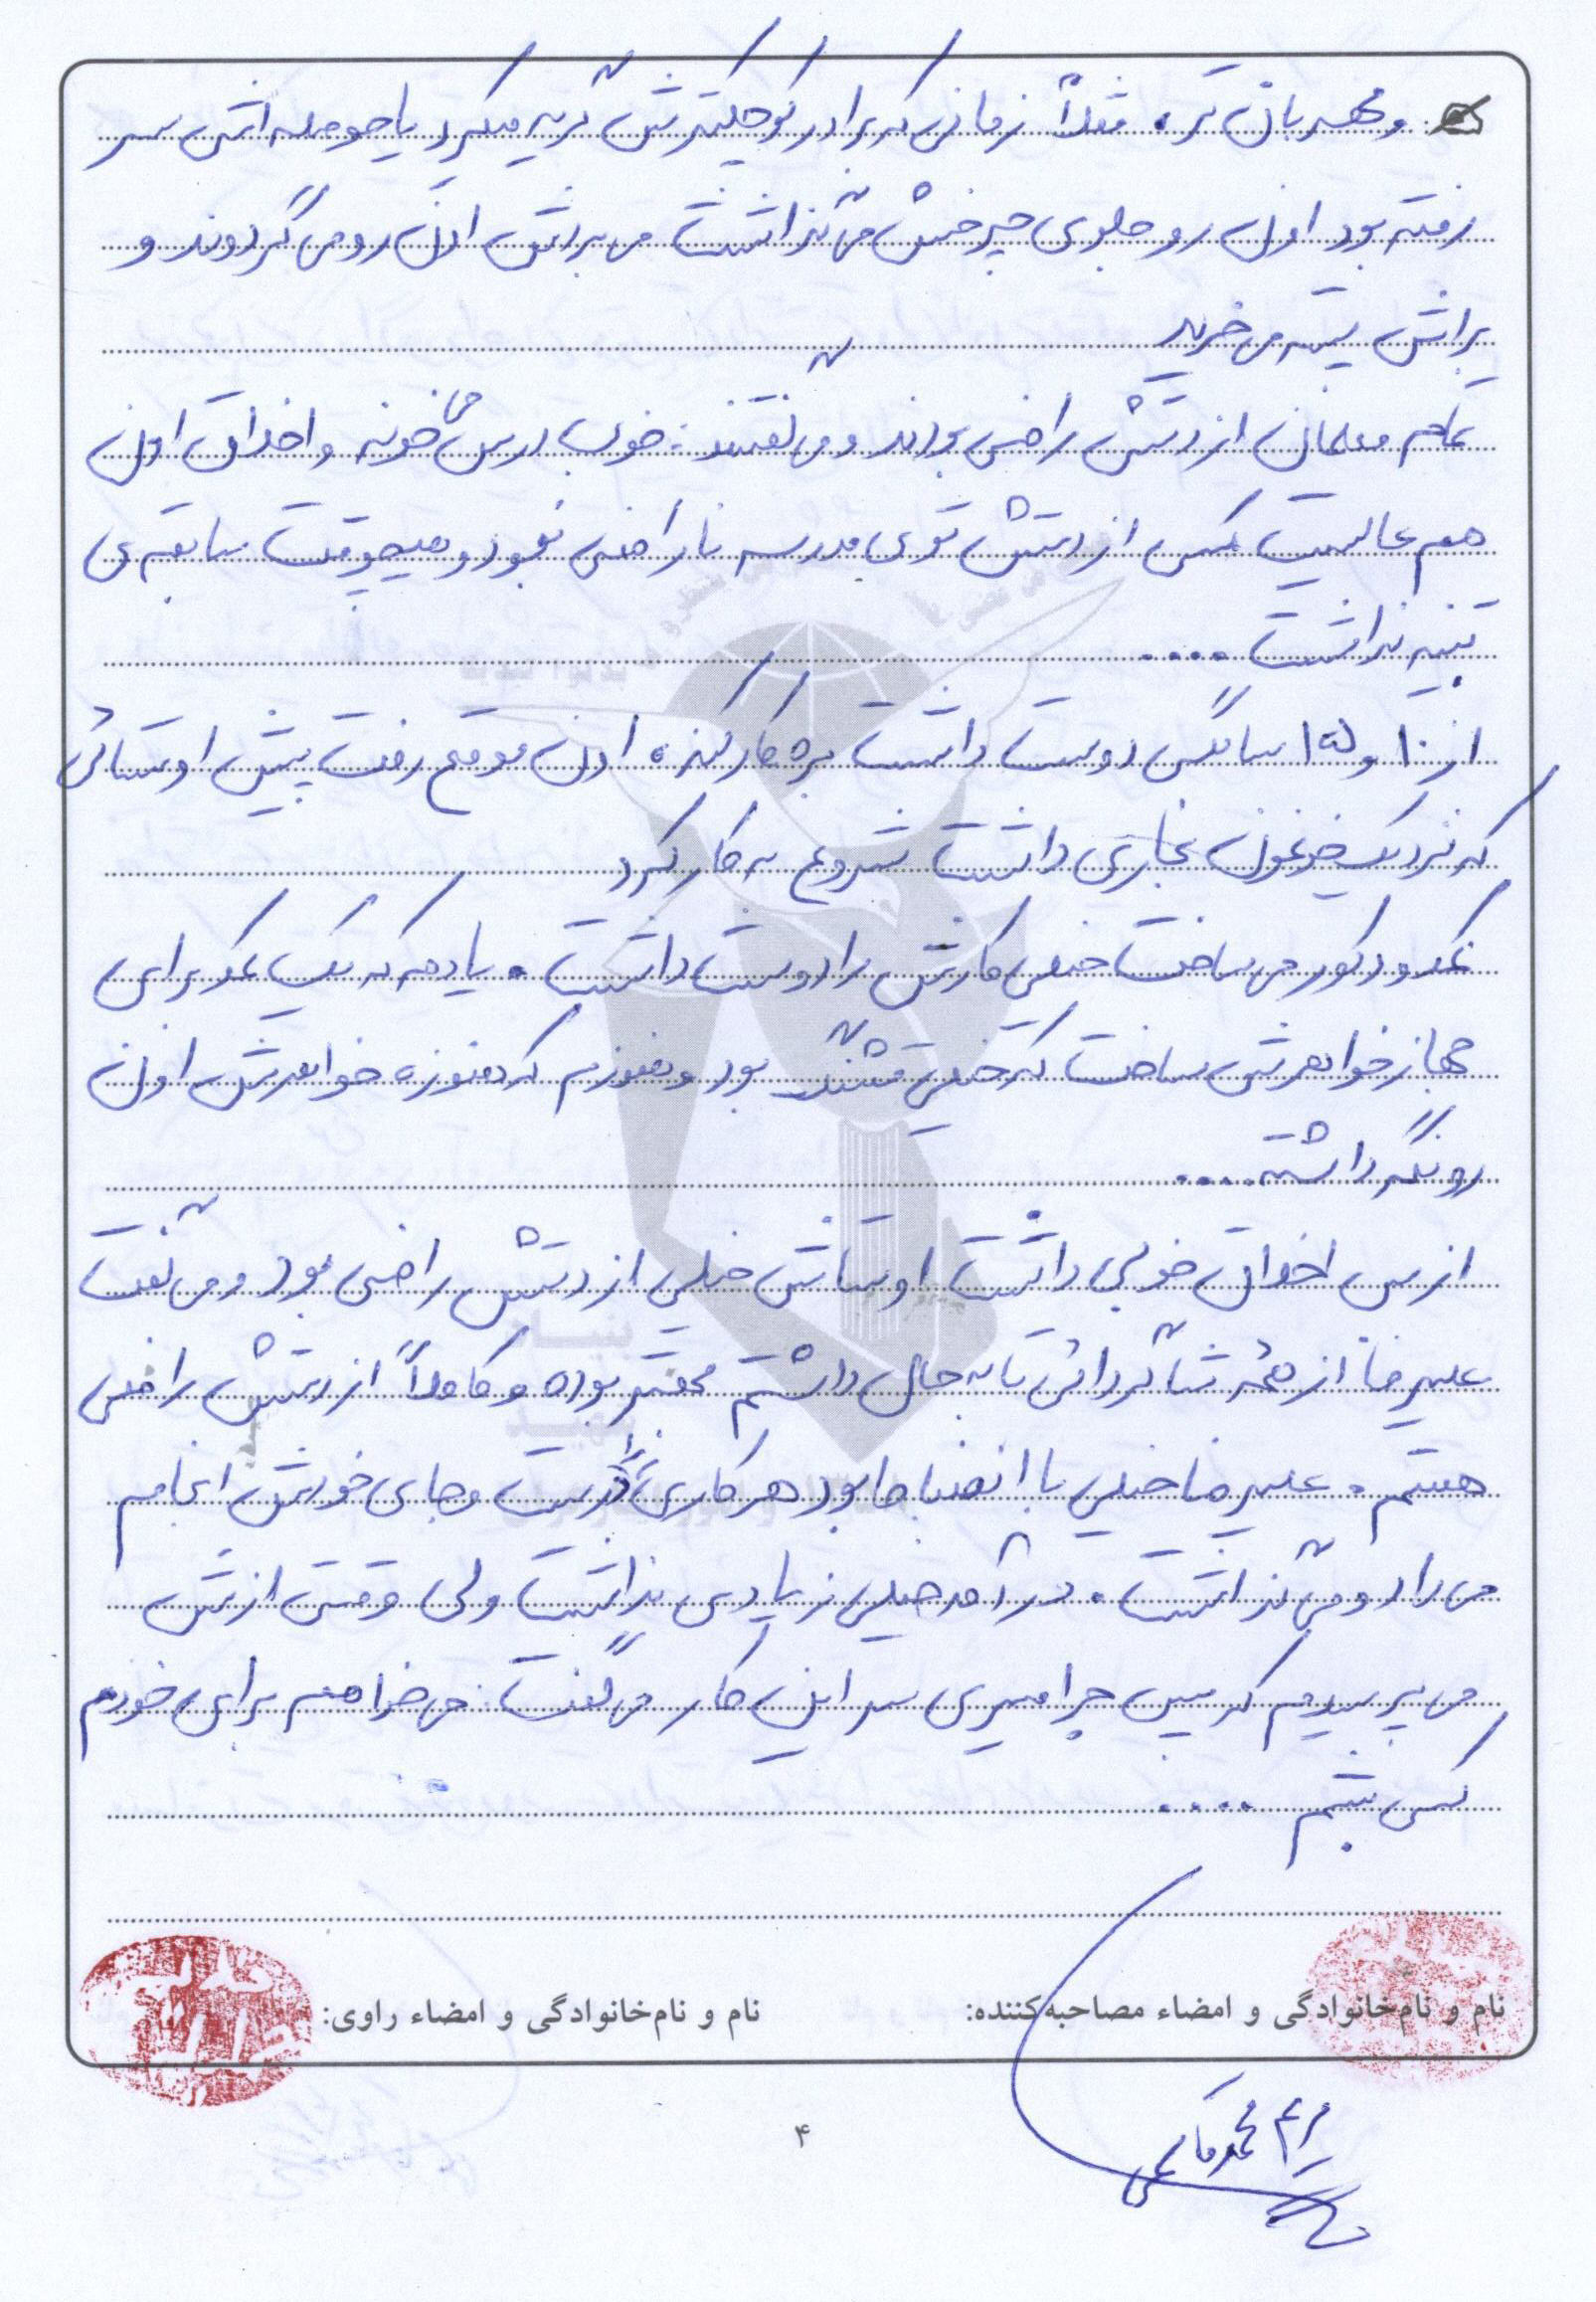 و مهربان تره مثلاً زمانی که برادر کوچکترش گریه میکرد یا حوصله اش سر
رفته بود اون رو جلوی چرخش می گذاشت می بردش اون رو می گردوند و
براش پسته می خرید
تمام معلمان از دستش راضی بودند و می گفتند: خوب درس می خونه و اخلاق اون
هم عالیست کسی از دستش توی مدرسه ناراضی نبود و هیچوقت سابقه ی
تنبیه نداشت ....
از ۱۰ و ۱۵ سالگی دوست داشت بره کار کنه. اون موقع رفت پیش اوستائی
که نزدیک نجاری داشت شروع به کار کرد
کمد و دکور می ساخت خیلی کارش را دوست داشت. یادمه که یک کمد برای
جهاز خواهرش ساخت که خیلی قشنگ بود و هنوزم که هنوزه خواهرش اون
رو نگه داشته ....
از بس اخلاق خوبی داشت اوستاش خیلی از دستش راضی بود و می گفت
علیرضا از همه شاگردائی تا به حال داشتم بوده و کاملاً از دستش راضی
هستم. علیرضا خیلی با انضباط بود هر کاری را درست و جای خودش انجام
می داد و می گذاشت. درآمد خیلی زیادی نداشت ولی وقتی ازش
می پرسیدم که پس چرا میری سر این کار می گفت: می خواهم برای خودم
کسی بشم ....
نام و نام‌خانوادگی و امضاء مصاحبه‌کننده:
نام و نام‌خانوادگی و امضاء راوی:
مریم محمد
۴